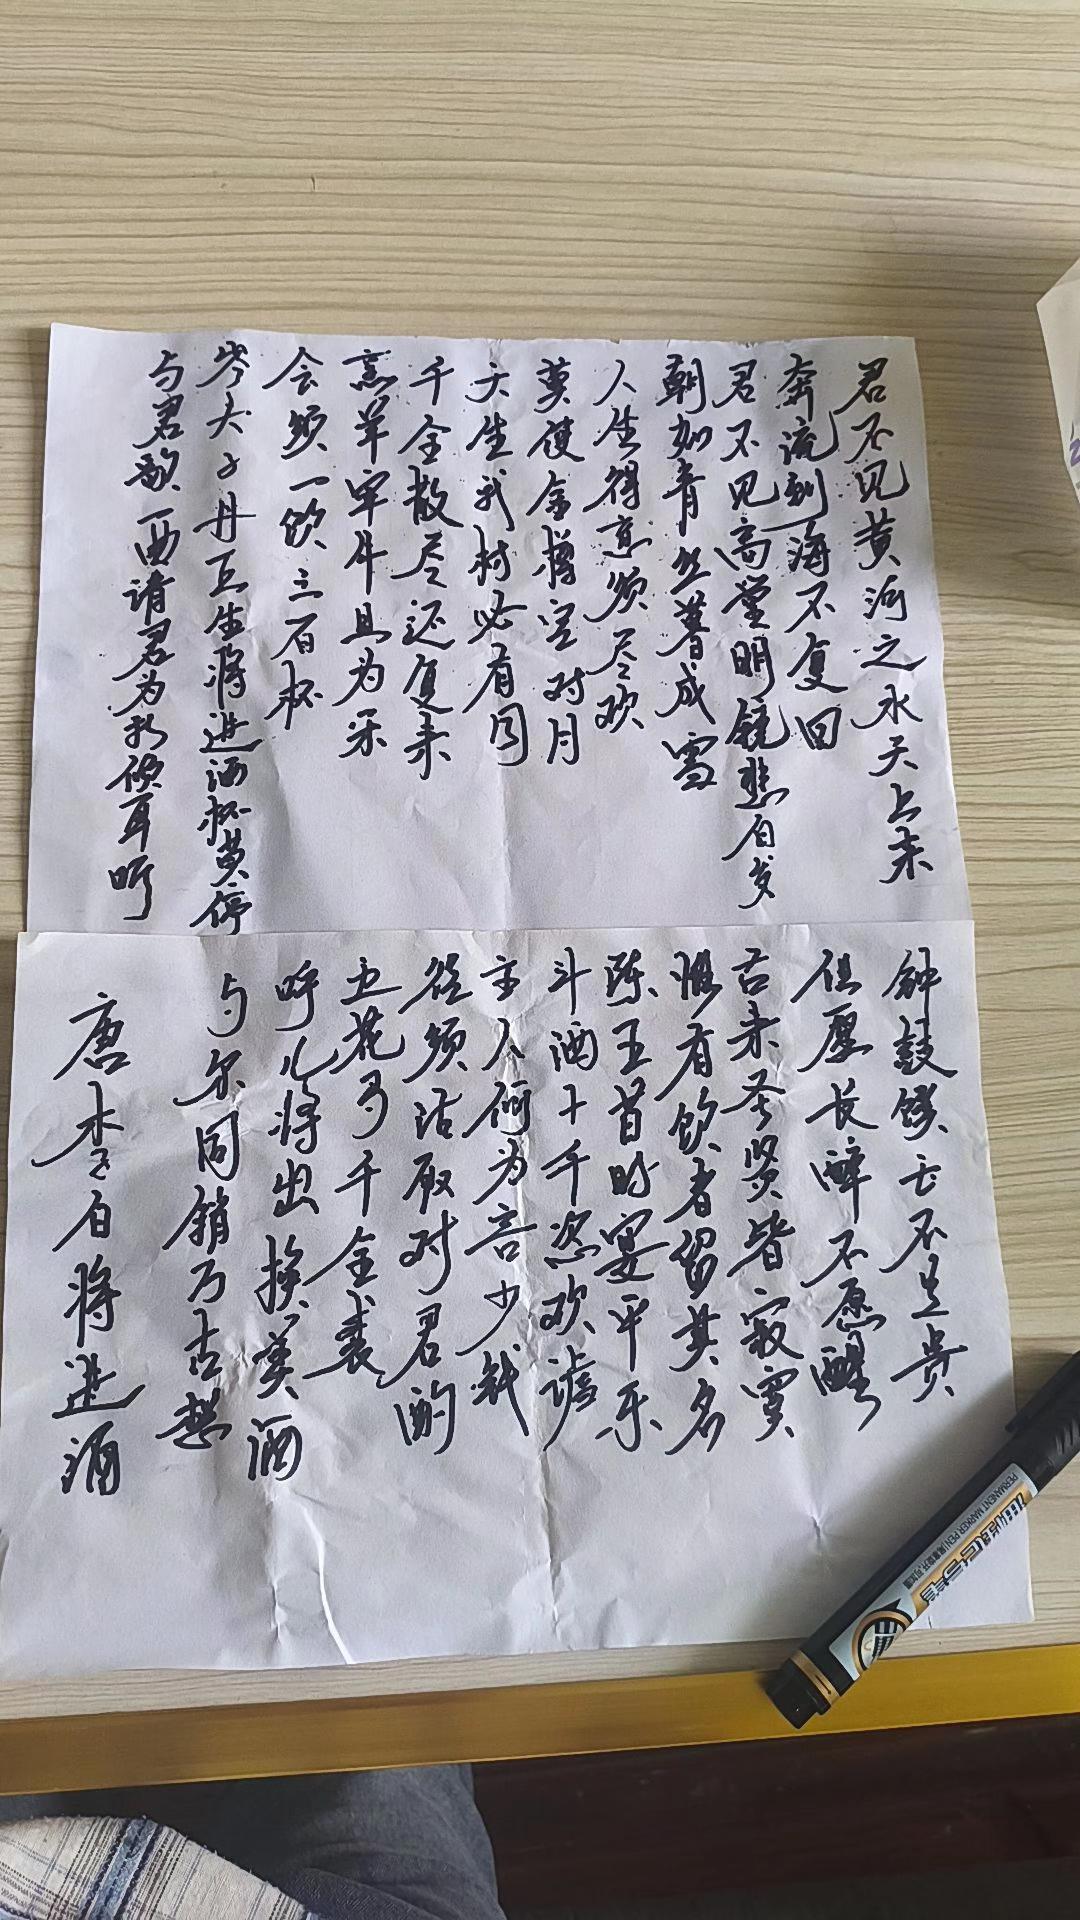 君不见黄河之水天上来
奔流到海不复回
君不见高堂明镜悲白发
朝如青丝暮成雪
人生得意须尽欢
莫使金樽空对月
天生我材必有用
千金散尽还复来
烹羊宰牛且为乐
会须一饮三百杯
岑夫子丹丘生将进酒杯莫停
与君歌一曲请君为我倾耳听
钟鼓馔玉不足贵
但愿长醉不愿醒
古来圣贤皆寂寞
惟有饮者留其名
陈王昔时宴平乐
斗酒十千恣欢谑
主人何为言少钱
径须沽取对君酌
五花马千金裘
呼儿将出换美酒
与尔同销万古愁
唐李白将进酒
PERMANENT MARKER PEN